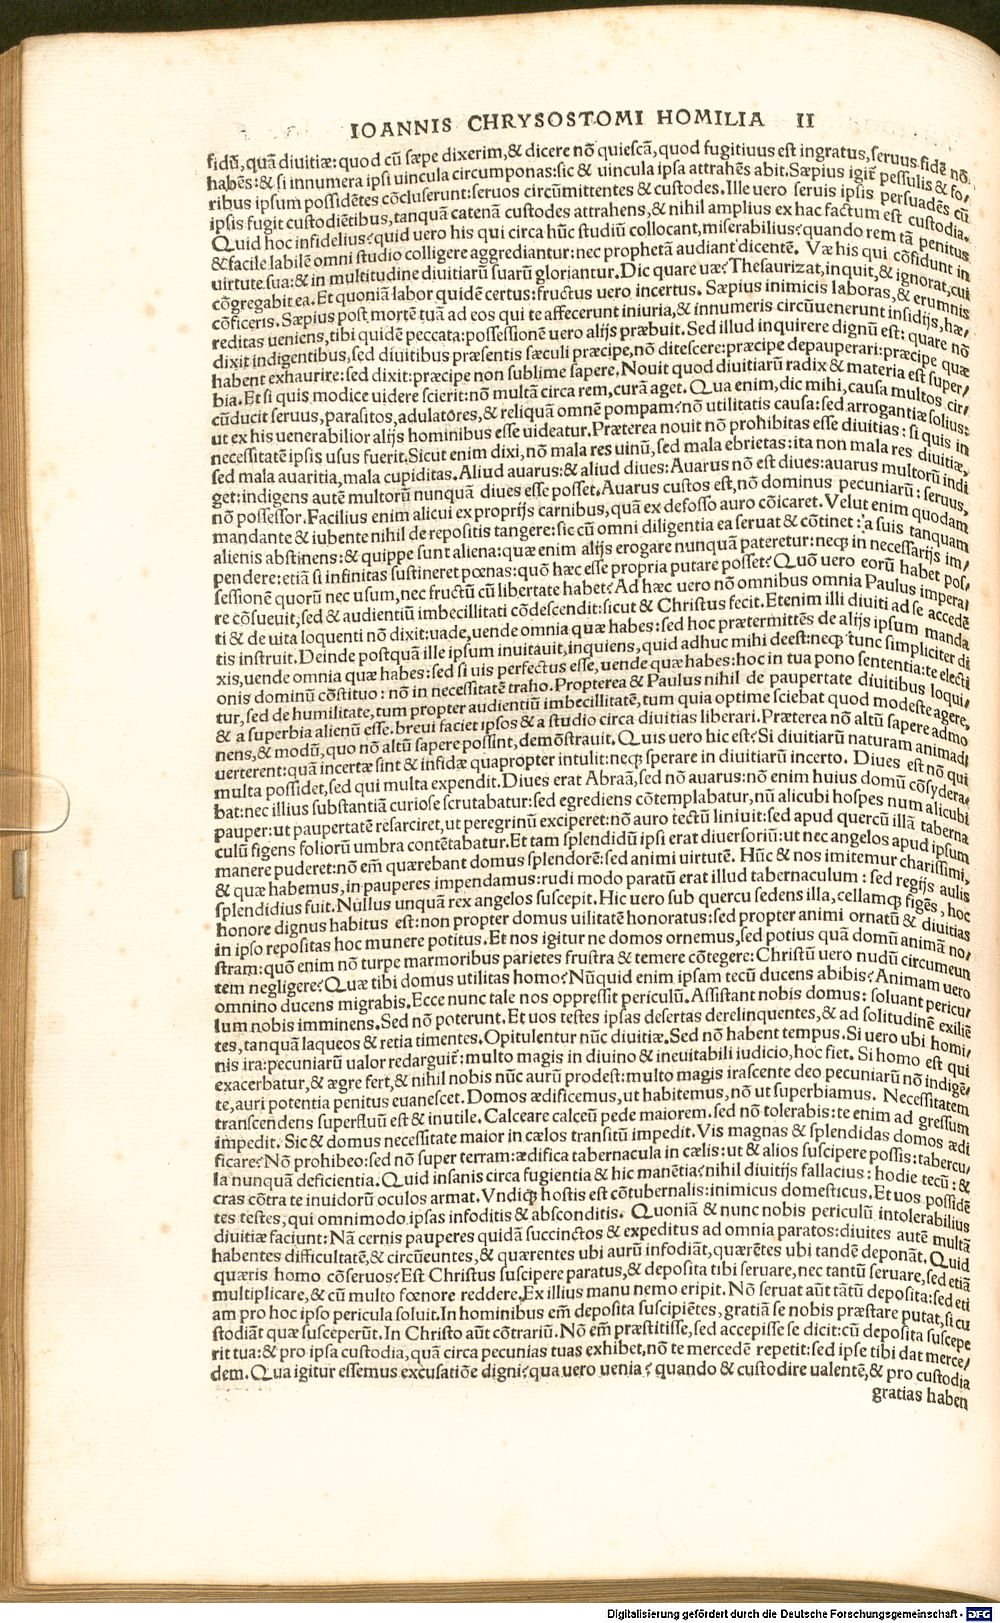 IOANNIS CHRYSOSTOMI HOMILIA II
fidū, quā diuitiæ: quod cū sæpe dixerim, & dicere nō quiescā, quod fugitiuus est ingratus, seruus fidē nō
habēs: & si innumera ipsi uincula circumponas: sic & uincula ipsa attrahēs abit. Sæpius igit̃ pessulis & fo/
ribus ipsum possidētes cōcluserunt: seruos circūmittentes & custodes. Ille uero seruis ipsis persuadēs cū
ipsis fugit custodiētibus, tanquā catenā custodes attrahens, & nihil amplius ex hac factum est custodia.
Quid hoc infidelius? quid uero his qui circa hūc studiū collocant, miserabilius? quando rem tā penitus
& facile labilē omni studio colligere aggrediantur: nec prophetā audiant dicentē. Væ his qui cōfidunt in
uirtute sua: & in multitudine diuitiarū suarū gloriantur. Dic quare uæ? Thesaurizat, inquit, & ignorat, cui
cōgregabit ea. Et quoniā labor quidē certus: fructus uero incertus. Sæpius inimicis laboras, & erumnis
cōficeris. Sæpius post mortē tuā ad eos qui te affecerunt iniuria, & innumeris circūuenerunt insidijs, hæ/
reditas ueniens, tibi quidē peccata: possessionē uero alijs præbuit. Sed illud inquirere dignū est: quare nō
dixit indigentibus, sed diuitibus præsentis sæculi præcipe, nō ditescere: præcipe depauperari: præcipe quæ
habent exhaurire: sed dixit: præcipe non sublime sapere. Nouit quod diuitiarū radix & materia est super/
bia. Et si quis modice uidere scierit: nō multā circa rem, curā aget. Qua enim, dic mihi, causa multos cir/
cūducit seruus, parasitos, adulatores, & reliquā omnē pompam? nō utilitatis causa: sed arrogantiæ solius:
ut ex his uenerabilior alijs hominibus esse uideatur. Præterea nouit nō prohibitas esse diuitias: si quis in
necessitatē ipsis usus fuerit. Sicut enim dixi, nō mala res uinū, sed mala ebrietas: ita non mala res diuitiæ,
sed mala auaritia, mala cupiditas. Aliud auarus: & aliud diues: Auarus nō est diues: auarus multorū indi
get: indigens autē multorū nunquā diues esse posset. Auarus custos est, nō dominus pecuniarū: seruus,
nō possessor. Facilius enim alicui ex proprijs carnibus, quā ex defosso auro cōicaret. Velut enim quodam
mandante & iubente nihil de repositis tangere: sic cū omni diligentia ea seruat & cōtinet: a suis tanquam
alienis abstinens: & quippe sunt aliena: quæ enim alijs erogare nunquā pateretur: neq; in necessarijs im/
pendere: etiā si infinitas sustineret pœnas: quō hæc esse propria putare posset? Quō uero eorū habet pos/
sessionē quorū nec usum, nec fructū cū libertate habet? Ad hæc uero nō omnibus omnia Paulus impera/
re cōsueuit, sed & audientiū imbecillitati cōdescendit: sicut & Christus fecit. Etenim illi diuiti ad se accedē
ti & de uita loquenti nō dixit: uade, uende omnia quæ habes: sed hoc prætermittēs de alijs ipsum manda
tis instruit. Deinde postquā ille ipsum inuitauit, inquiens, quid adhuc mihi deest: neq; tunc simpliciter di
xis, uende omnia quæ habes: sed si uis perfectus esse, uende quæ habes: hoc in tua pono sententia: te electi
onis dominū cōstituo: nō in necessitatē traho. Propterea & Paulus nihil de paupertate diuitibus loqui/
tur, sed de humilitate, tum propter audientiū imbecillitatē, tum quia optime sciebat quod modeste agere,
& a superbia alienū esse. breui faciet ipsos & a studio circa diuitias liberari. Præterea nō altū sapere admo
nens, & modū, quo nō altū sapere possint, demōstrauit. Quis uero hic est? Si diuitiarū naturam animad/
uerterent: quā incertæ sint & infidæ quapropter intulit: neq; sperare in diuitiarū incerto. Diues est nō qui
multa possidet, sed qui multa expendit. Diues erat Abraā, sed nō auarus: nō enim huius domū cōsydera/
bat: nec illius substantiā curiose scrutabatur: sed egrediens cōtemplabatur, nū alicubi hospes num alicubi
pauper: ut paupertatē resarciret, ut peregrinū exciperet: nō auro tectū liniuit: sed apud quercū illā taberna
culū figens foliorū umbra contētabatur. Et tam splendidū ipsi erat diuersoriū: ut nec angelos apud ipsum
manere puderet: nō em̄ quærebant domus splendorē: sed animi uirtutē. Hūc & nos imitemur charissimi,
& quæ habemus, in pauperes impendamus: rudi modo paratū erat illud tabernaculum: sed regijs aulis
splendidius fuit. Nullus unquā rex angelos suscepit. Hic uero sub quercu sedens illa, cellamq; figēs, hoc
honore dignus habitus est: non propter domus uilitatē honoratus: sed propter animi ornatū & diuitias
in ipso repositas hoc munere potitus. Et nos igitur ne domos ornemus, sed potius quā domū animā no/
stram: quō enim nō turpe marmoribus parietes frustra & temere cōtegere: Christū uero nudū circumeun
tem negligere? Quæ tibi domus utilitas homo? Nūquid enim ipsam tecū ducens abibis? Animam uero
omnino ducens migrabis. Ecce nunc tale nos oppressit periculū. Assistant nobis domus: soluant pericu/
lum nobis imminens. Sed nō poterunt. Et uos testes ipsas desertas derelinquentes, & ad solitudinē exiliē
tes, tanquā laqueos & retia timentes. Opitulentur nūc diuitiæ. Sed nō habent tempus. Si uero ubi homi/
nis ira: pecuniarū ualor redarguit̃: multo magis in diuino & ineuitabili iudicio, hoc fiet. Si homo est qui
exacerbatur, & ægre fert, & nihil nobis nūc aurū prodest: multo magis irascente deo pecuniarū nō indigē/
te, auri potentia penitus euanescet. Domos ædificemus, ut habitemus, nō ut superbiamus. Necessitatem
transcendens superfluū est & inutile. Calceare calceū pede maiorem. sed nō tolerabis: te enim ad gressum
impedit. Sic & domus necessitate maior in cælos transitū impedit. Vis magnas & splendidas domos ædi
ficare? Nō prohibeo: sed nō super terram: ædifica tabernacula in cælis: ut & alios suscipere possis: tabercu/
la nunquā deficientia. Quid insanis circa fugientia & hic manētia? nihil diuitijs fallacius: hodie tecū: &
cras cōtra te inuidorū oculos armat. Vndiq; hostis est cōtubernalis: inimicus domesticus. Et uos possidē
tes testes, qui omnimodo ipsas infoditis & absconditis. Quoniā & nunc nobis periculū intolerabilius
diuitiæ faciunt: Nā cernis pauperes quidā succinctos & expeditus ad omnia paratos: diuites autē multā
habentes difficultatē, & circūeuntes, & quærentes ubi aurū infodiāt, quærētes ubi tandē deponāt. Quid
quæris homo cōseruos? Est Christus suscipere paratus, & deposita tibi seruare, nec tantū seruare, sed etiā
multiplicare, & cū multo fœnore reddere. Ex illius manu nemo eripit. Nō seruat aūt tātū deposita: sed eti
am pro hoc ipso pericula soluit. In hominibus em̄ deposita suscipiētes, gratiā se nobis præstare putat, si cu
stodiāt quæ susceperūt. In Christo aūt cōtrariū. Nō em̄ præstitisse, sed accepisse se dicit: cū deposita suscepe
rit tua: & pro ipsa custodia, quā circa pecunias tuas exhibet, nō te mercedē repetit: sed ipse tibi dat merce/
dem. Qua igitur essemus excusatiōe digni? qua uero uenia? quando & custodire ualentē, & pro custodia
gratias haben
Digitalisierung gefördert durch die Deutsche Forschungsgemeinschaft - DFG